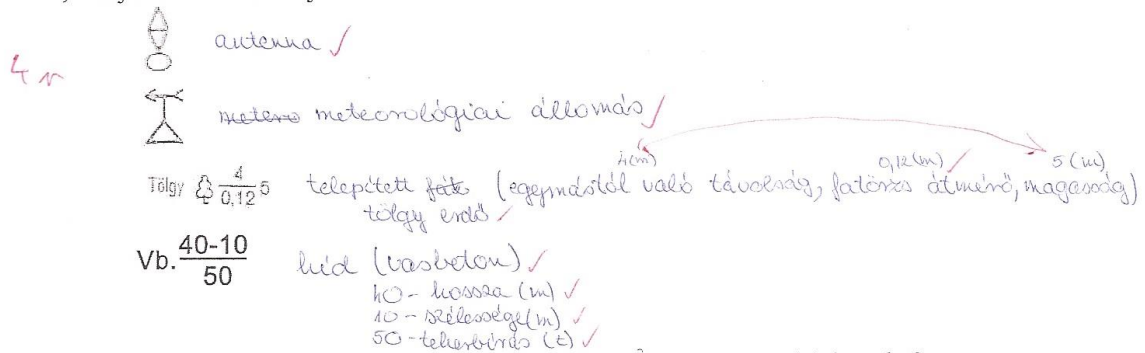 antenna ✓
4 r
metero meteorológiai állomás ✓
4(m) 0,12(m) ✓ 5(m)
Tölgy 4/0,12 5 telepített fák (egymástól való távolság, fatörzs átmérő, magasság)
tölgy erdő ✓
Vb. 40-10/50 híd (vasbeton) ✓
40 - hossza (m) ✓
10 - szélessége (m) ✓
50 - teherbírás (t) ✓